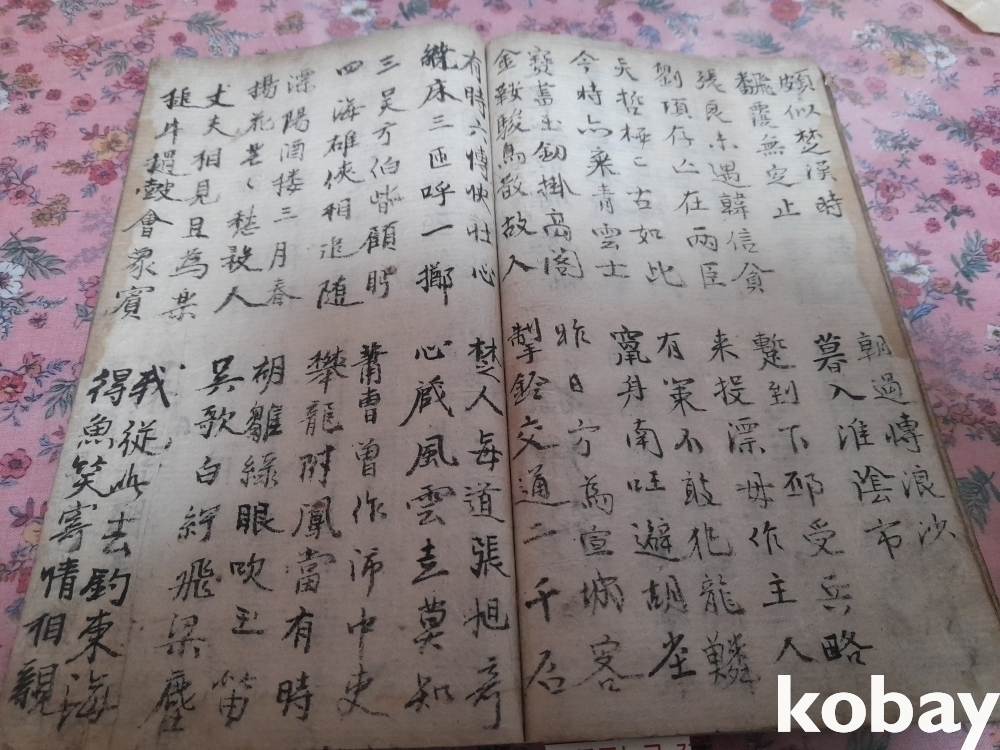 頗似楚漢時
翻覆無定止
朝過博浪沙
暮入淮陰市
張良未遇韓信貧
劉項存亡在兩臣
蹔到下邳受兵略
来投漂母作主人
哲極〻古如此
今時亦棄青雲士
有策不敢犯龍鱗
竄身南国避胡尘
寶書玉釼掛高閣
金鞍駿馬散故人
昨日方為宣城客
掣鈴交通二千石
有時六博快壯心
繞床三匝呼一擲
楚人每道張旭奇
心藏風雲世莫知
三吴方伯皆顧眄
四海雄俠相追随
蕭曹曽作沛中吏
攀龍附鳳當有時
溧陽酒楼三月春
揚花茫〻愁殺人
胡雛緑眼吹玉笛
吴歌白紵飛梁塵
丈夫相見且為楽
槌牛撾皷會衆賓
我従此去釣東海
得魚笑寄情相親
kobay